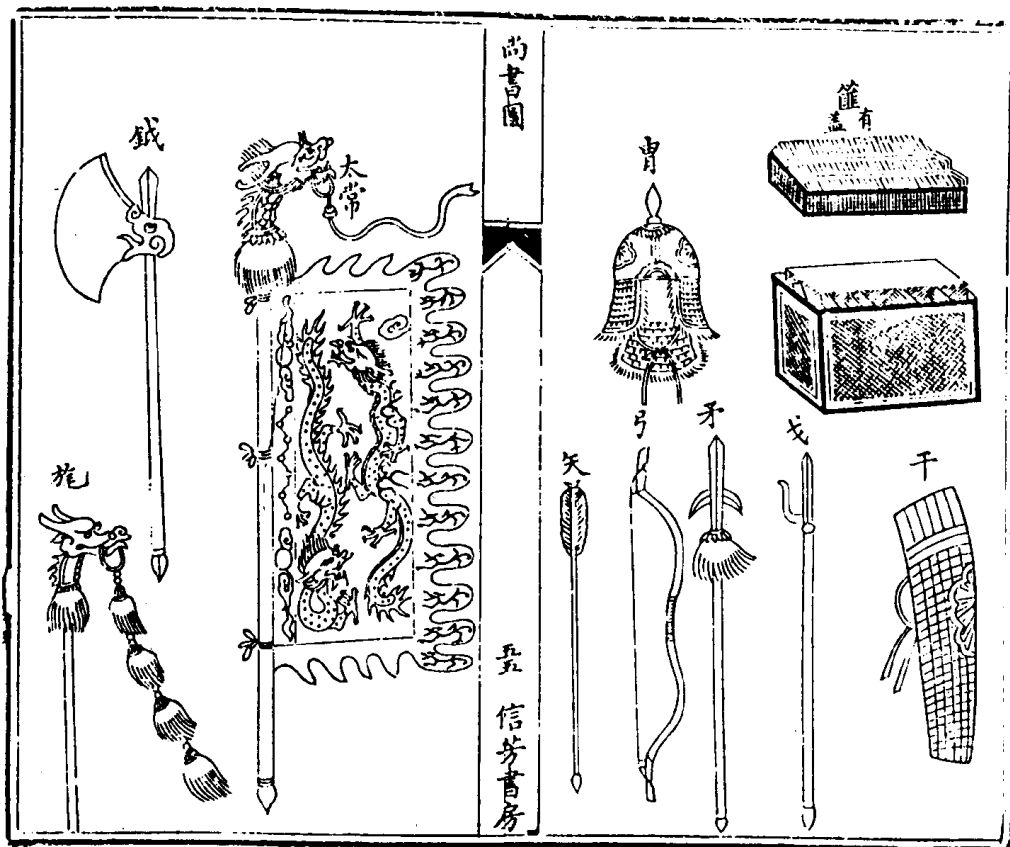 篚
有盖
冑
干
戈
矛
弓
矢
尚書圖
五五
信芳書房
太常
鉞
旄